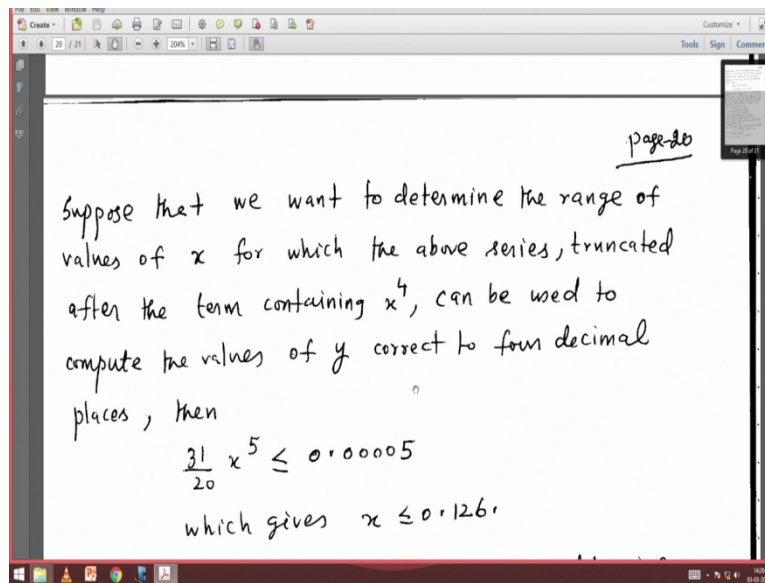 File Edit View Window Help
Create
Customize
20 / 21
204%
Tools Sign Comment
page-20
Page 20 of 21
Suppose that we want to determine the range of
values of x for which the above series, truncated
after the term containing x⁴, can be used to
compute the values of y correct to four decimal
places, then
31/20 x⁵ ≤ 0.00005
which gives x ≤ 0.126.